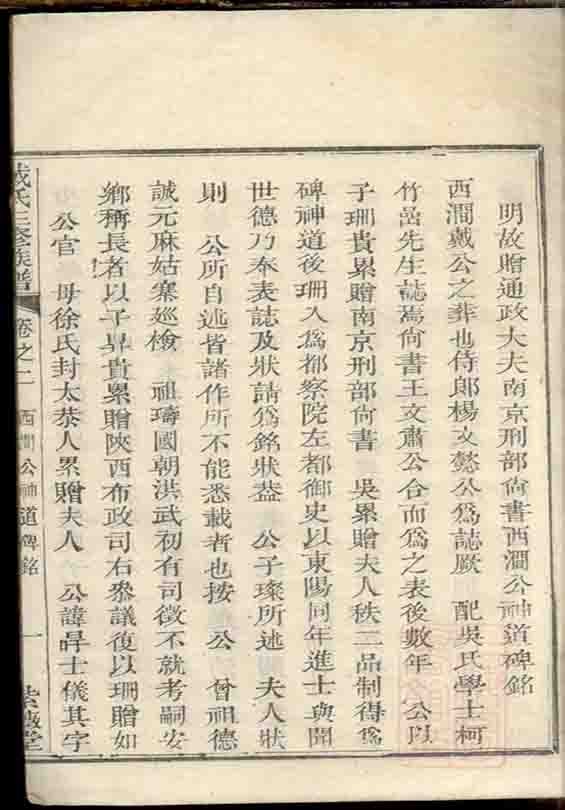 明故贈通政大夫南京刑部尚書西澗公神道碑銘
西澗戴公之葬也侍郎楊文懿公爲誌厥 配吳氏學士柯
竹嵒先生誌焉尚書王文肅公合而爲之表後數年 公以
子珊貴累贈南京刑部尚書 吳累贈夫人秩二品制得爲
碑神道後珊入爲都察院左都御史以東陽同年進士與聞
世德乃奉表誌及狀請爲銘狀蓋 公子璨所述 夫人狀
則 公所自述皆諸作所不能悉載者也按 公 曾祖德
誠元麻姑寨廵檢 祖璹國朝洪武初有司徵不就考嗣安
鄉稱長者以子昇貴累贈陝西布政司右叅議復以珊贈如
公官 母徐氏封太恭人累贈夫人 公諱昇士儀其字
戴氏三修族譜 卷之二 西澗公神道碑銘 一 紫薇堂